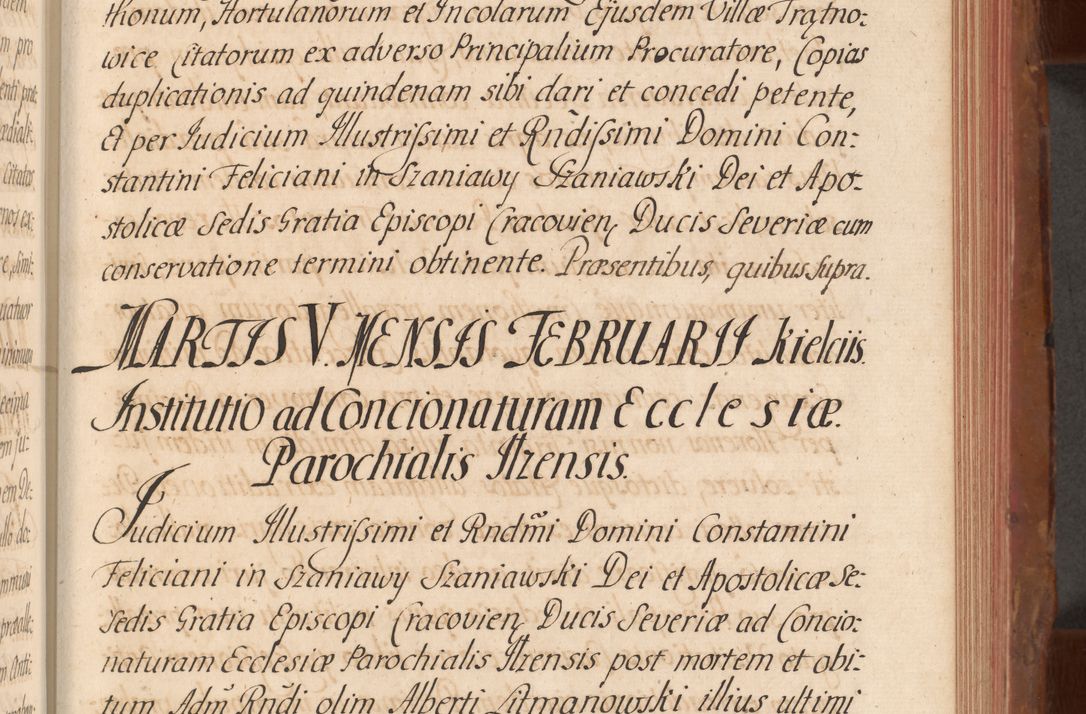 thionum, Hortulanorum et Incolarum Ejusdem Villæ Tratno:
wice Citatorum ex adverso Principalium Procuratore, Copias
duplicationis ad quindenam sibi dari et concedi petente,
Et per Judicium Illustrissimi et Rndissimi Domini Con:
stantini Feliciani in Szaniawy Szaniawski Dei et Apo:
stolicæ Sedis Gratia Episcopi Cracovien, Ducis Severiæ cum
conservatione termini obtinente. Præsentibus, quibus supra.
MARTIS V. MENSIS FEBRUARII Kielciis.
Institutio ad Concionaturam Ecclesiæ
Parochialis Ilzensis.
Judicium Illustrissimi et Rndm̃i Domini Constantini
Feliciani in Szaniawy Szaniawski Dei et Apostolicæ Se:
Sedis Gratia Episcopi Cracovien, Ducis Severiæ ad Concio:
naturam Ecclesiæ Parochialis Ilzensis post mortem et obi:
tum Adm̃ Rñdi olim Alberti Litmanowski illius ultimi